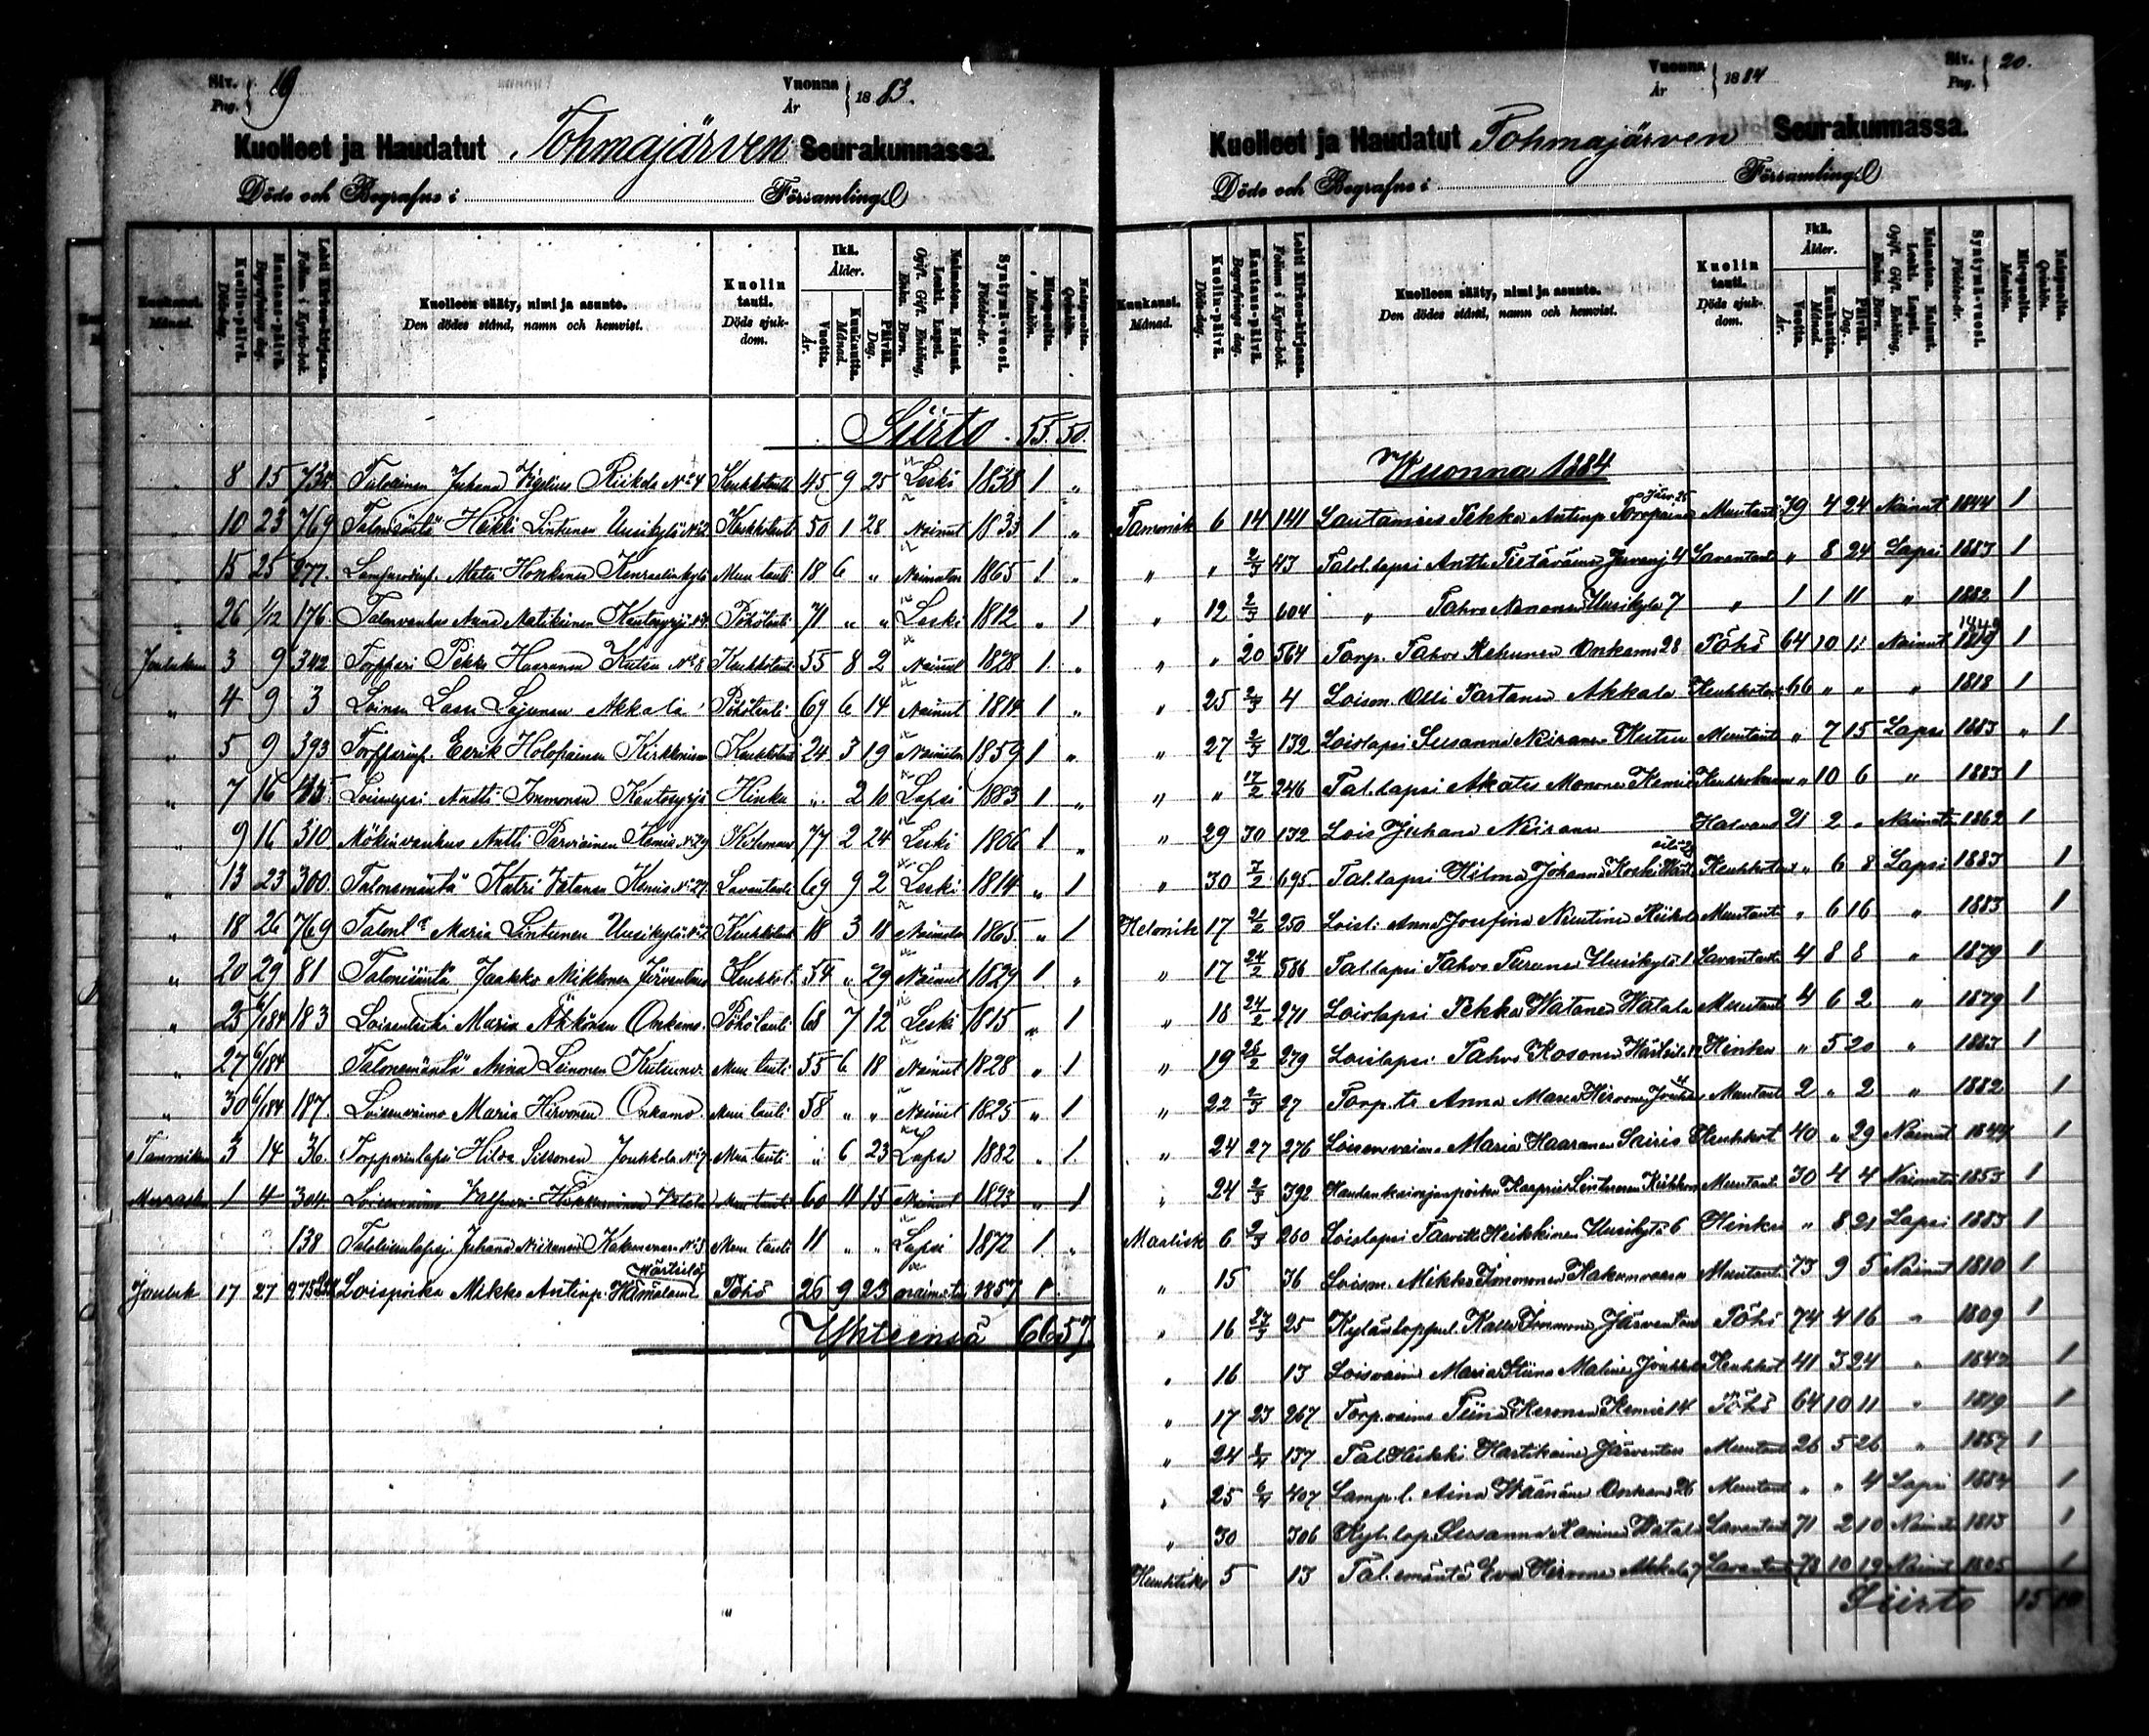 Siv. Pag. 19
Vuonna År 1883.
Kuolleet ja Haudatut Tohmajärven Seurakunnassa.
Döde och Begrafne i Församling
Kuukausi. Månad.
Kuolin-päivä. Döds-dag.
Hautaus-päivä. Begrafnings dag.
Lehti Kirkon-kirjassa. Folium i Kyrko-bok.
Kuolleen sääty, nimi ja asunto. Den dödes stånd, namn och hemvist.
Kuolin tauti. Döds sjukdom.
Ikä. Ålder.
Vuotta. År.
Kuukautta. Månad.
Päivää. Dag.
Naimaton. Nainut. Leski. Lapsi. Ogift. Gift. Enkling, Enka. Barn.
Syntymä-vuosi. Födelse-år.
Miespuolta. Mankön.
Naispuolta. Qvinkön.
Siirto 55 50.
8 15 738 Talollinen Juhana Rikola No 4 Keuhkotauti 45 9 25 Leski 1838 1 "
10 23 769 Talonisäntä Heikki Lintunen Uusikylä No 2 Keuhkotauti 50 1 28 Nainut 1833 1 "
15 25 277. Matti Honkanen Muu tauti 18 6 " Naimaton 1865 1 "
26 1/12 176. Talonvanhus Anna Matikainen Pöhötauti 71 " " Leski 1812 " 1
Jouluku 3 9 342 Torppari Pekka Haaranen Kutsu No 8 Keuhkotauti 55 8 2 Nainut 1828 1 "
" 4 9 3 Loinen Lassi Lajunen Akkala Pöhötauti 69 6 14 Nainut 1814 1 "
" 5 9 393 Eerik Holopainen Keuhkotauti 24 3 19 Naimaton 1859 1 "
" 7 16 Loislapsi Antti Immonen Kantosyrjä Hinku " 2 10 Lapsi 1883 1 "
" 9 16 310 Mökinvanhus Antti Parviainen Kemie No 29 77 2 24 Leski 1806 1 "
" 13 23 300. Talonemäntä Katri Vatanen Kemie No 27 Lavantauti 69 9 2 Leski 1814 " 1
" 18 26 769 Maria Lintunen Uusikylä No 2 Keuhkotauti 18 3 18 Naimaton 1865 " 1
" 20 29 81 Talonisäntä Jaakko Mikkonen Järventaus Keuhkot. 54 " 29 Nainut 1829 1 "
" 25 6/1 84 183 Loisenleski Maria Äkkönen Onkamo. Pöhötauti 68 7 12 Leski 1815 " 1
" 27 6/1 84 Talonemäntä Anna Leinonen Muu tauti 55 6 18 Nainut 1828 " 1
" 30 6/1 84 187. Loisenvaimo Maria Hirvonen Onkamo. Muu tauti 58 " " Nainut 1825 " 1
Tammiku 3 14 36. Torpparinlapsi Hilda Silvonen Jouhkola No 7 Muu tauti " 6 23 Lapsi 1882 " 1.
Marrask 1 4 304. Loisenvaimo Valpuri Vatala Muu tauti 60 11 15 Nainut 1823 " 1
138 Talollisenlapsi Juhana Neiranen Kakunvaara No 3 Muu tauti 11 " " Lapsi 1872 1 "
Jouluk 17 27 275 Loispoika Mikko Antinp. Hämäläinen Wärtsilä Pöhö 26 9 23 naimaton 1857 1
Yhteensä 66 57
Vuonna År 1884
Siv. Pag. 20.
Kuolleet ja Haudatut Tohmajärven Seurakunnassa.
Döde och Begrafne i Församling
Kuukausi. Månad.
Kuolin-päivä. Döds-dag.
Hautaus-päivä. Begrafnings dag.
Lehti Kirkon-kirjassa. Folium i Kyrko-bok.
Kuolleen sääty, nimi ja asunto. Den dödes stånd, namn och hemvist.
Kuolin tauti. Döds sjukdom.
Ikä. Ålder.
Vuotta. År.
Kuukautta. Månad.
Päivää. Dag.
Naimaton. Nainut. Leski. Lapsi. Ogift. Gift. Enkling, Enka. Barn.
Syntymä-vuosi. Födelse-år.
Miespuolta. Mankön.
Naispuolta. Qvinkön.
Wuonna 1884
Tammik 6 14 141 Lautamies Pekka Antinp Toropainen Muutauti 39 4 24 Nainut 1844 1
" " 2/3 43 Talol.lapsi Antti Tietäväinen 4 Lavantauti " 8 24 Lapsi 1883 1
" 12 2/3 604 " Tahvo Nenonen Uusikylä 7 " 1 1 11 " 1882 1
" " 20 564 Torp. Tahvo Kehunen Onkamo 28 Pöhö 64 10 11 Nainut 1819 1
" 25 2/3 4 Loism. Olli Tartanen Akkala Keuhkotauti 66 " " " 1818 1
" 27 2/3 132 Loislapsi Susanna Neiranen Kutsu Muutauti " 7 15 Lapsi 1883 " 1
" " 17/2 246 Tal.lapsi Akates Mononen Kemie " 10 6 " 1883 1
" 29 30 132 Lois Juhana Neiranen Halvaus 21 2 " Naimaton 1862 1
" 30 7/2 695 Tal.lapsi Hilma Johanna Koski Wärtsilä 28 Keuhkotaut " 6 8 Lapsi 1883 1
Helmik 17 21/2 250 Loisl: Anna Josefina Nuutinen Riikola Muutauti " 6 16 " 1883 1
" 17 24/2 586 Tal.lapsi Tahvo Turunen Uusikylä 1 Lavantauti 4 8 8 " 1879 1
" 18 24/2 271 Loislapsi Pekka Watanen Watala Muutauti 4 6 2 " 1879 1
" 19 26/2 279 Loislapsi Tahvo Kosonen Wärtsilä Hinku " 5 20 " 1883 1
" 22 2/3 27 Torp. ts Anna Maria Hirvonen Muutaut 2 " 2 " 1882 1
" 24 27 276 Loisenvaimo Maria Haaranen Sairio Keuhkot 40 " 29 Nainut 1844 1
" 24 2/3 392 Haudankaivajanpoika Kasper Lintunen Muutaut 30 4 4 Naimaton 1853 1
Maalisk 6 2/3 260 Loislapsi Taavetti Heikkinen Uusikylä 6 Hinku " 8 21 Lapsi 1883 1
" 15 36 Loism. Mikko Immonen Kakunvaara Muutauti 73 9 5 Nainut 1810 1
" 16 27/3 25 Kalle Immonen Järventaus Pöhö 74 4 16 " 1809 1
" 16 13 Loisvaim Maria Stiina Malinen Jouhkola Keuhkot 41 3 24 " 1842 1
" 17 23 267 Torp.vaimo Tiina Keronen Kemie 14 Pöhö 64 10 11 " 1819 1
" 24 137 Tal. Heikki Hartikainen Järventaus Muutaut 26 5 26 " 1857 1
" 25 407 Lamp. l. Aina Wäänänen Onkamo 26 Muutaut " " 4 Lapsi 1884 1
" 30 306 Kyl.lop. Susanna Watala Lavantaut 71 2 10 1813 1
Huhtik 5 13 Tal. emäntä Eva Hirvonen Akkala 7 Lavantaut 78 10 19 Nainut 1805 1
Siirto 15 10